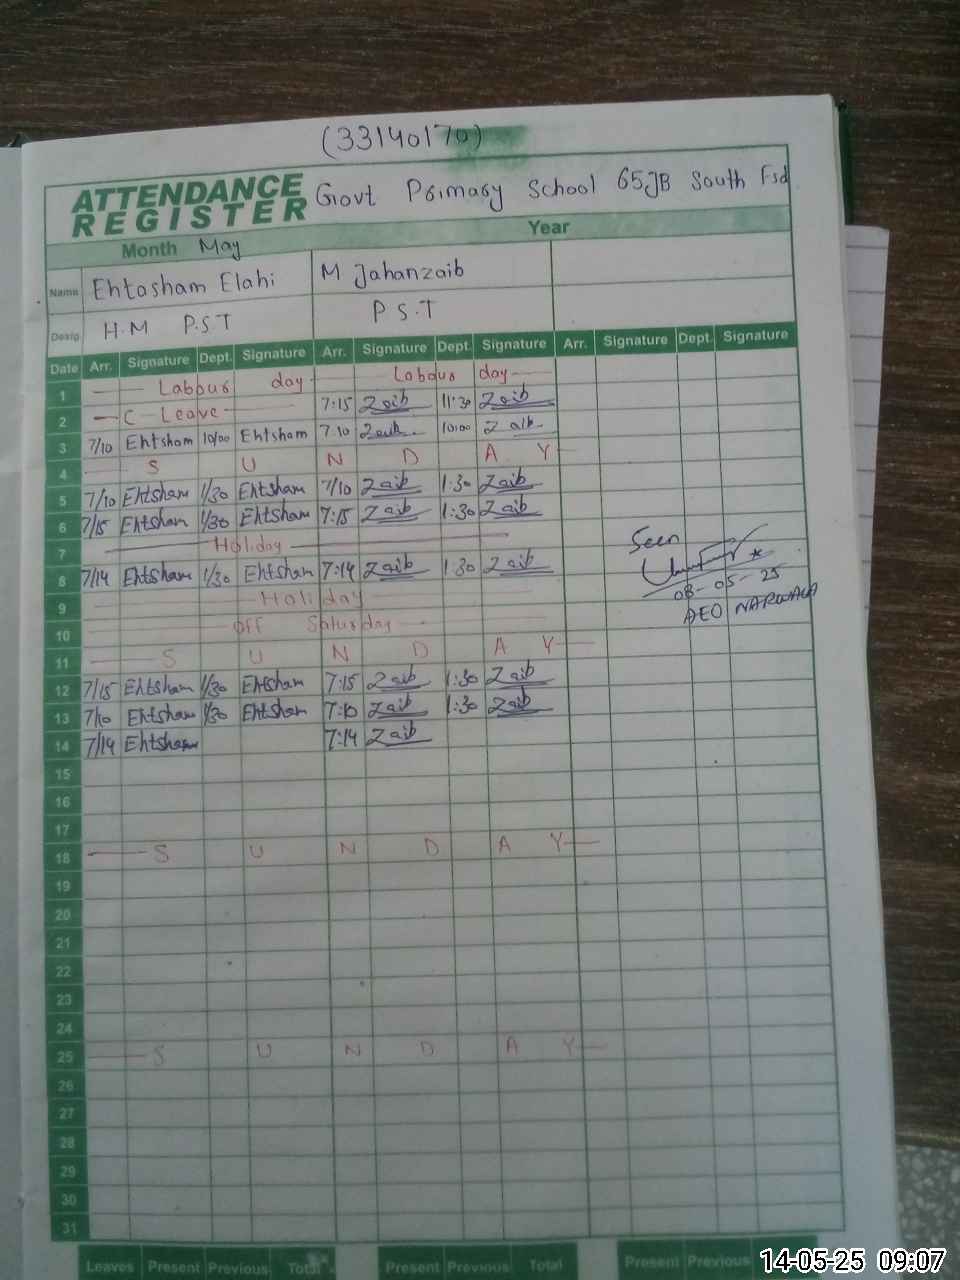 (33140170)
ATTENDANCE REGISTER Govt Primary School 65JB South Fsd
Month May Year
Name Ehtasham Elahi M Jahanzaib
Desig. H.M P.S.T P.S.T
Date Arr. Signature Dept. Signature Arr. Signature Dept. Signature Arr. Signature Dept. Signature
1 Labour day Labour day
2 C Leave 7:15 Zaib 11:30 Zaib
3 7/10 Ehtsham 10/00 Ehtsham 7:10 Zaib 10:00 Zaib
4 S U N D A Y
5 7/10 Ehtsham 1/30 Ehtsham 7/10 Zaib 1:30 Zaib
6 7/15 Ehtsham 1/30 Ehtsham 7:15 Zaib 1:30 Zaib
7 Holiday Seen
8 7/14 Ehtsham 1/30 Ehtsham 7:14 Zaib 1:30 Zaib
08-05-25
9 Holiday AEO NARWALA
10 OFF Saturday
11 S U N D A Y
12 7/15 Ehtsham 1/30 Ehtsham 7:15 Zaib 1:30 Zaib
13 7/10 Ehtsham 1/30 Ehtsham 7:10 Zaib 1:30 Zaib
14 7/14 Ehtsham 7:14 Zaib
15
16
17
18 S U N D A Y
19
20
21
22
23
24
25 S U N D A Y
26
27
28
29
30
31
Leaves Present Previous Total Present Previous Total Present Previous
14-05-25 09:07